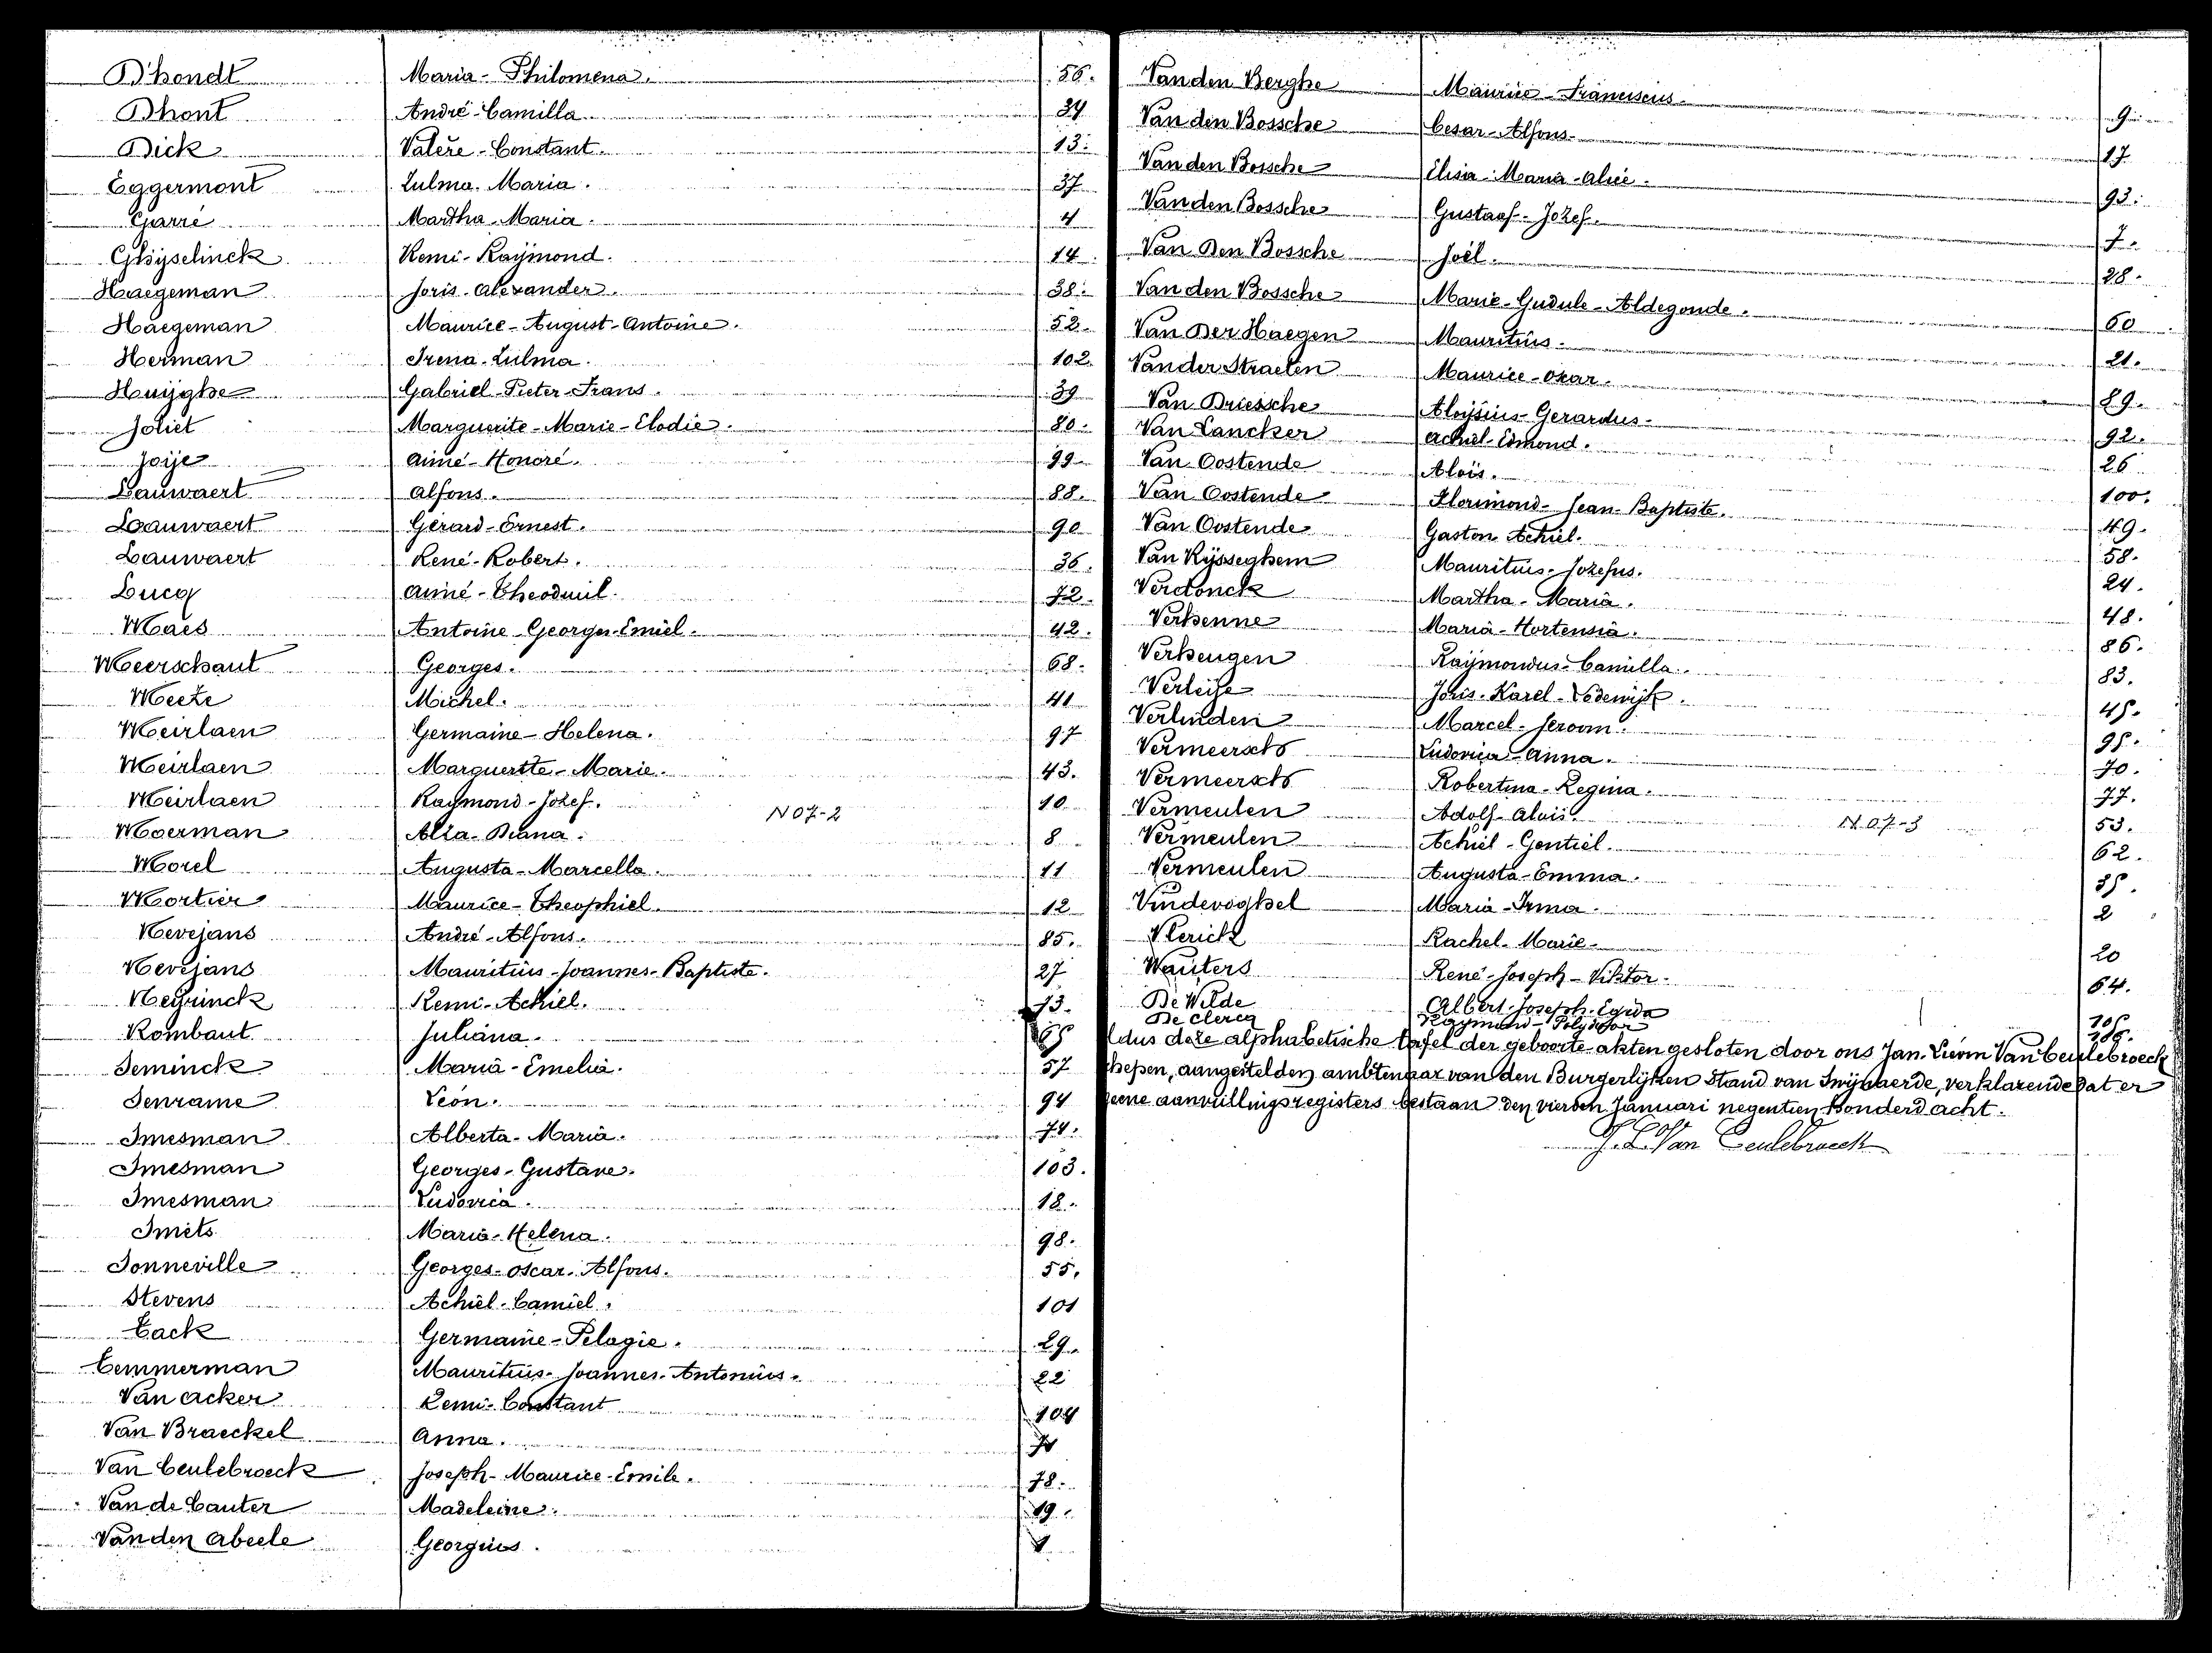 D'hondt Maria-Philomena. 56.
Dhont André-Camilla 34
Dick Valère-Constant. 13.
Eggermont Zulma. Maria. 37
Garré Martha-Maria. 4
Ghijselinck Remi-Raijmond. 14.
Haegeman Joris-Alexander. 38.
Haegeman Maurice-August-Antoine. 52.
Herman Irena-Zulma. 102.
Huijghe Gabriel-Pieter-Frans. 39
Joliet Marguerite-Marie-Elodie. 80.
Joije Aimé-Honoré. 99
Lauwaert Alfons. 88.
Lauwaert Gérard-Ernest. 90
Lauwaert René-Robert. 36.
Lucq Aimé-Theodmil. 72.
Maes Antoine-Georges-Emiel. 42.
Meerschaut Georges. 68.
Meeze Michel. 41
Meirlaen Germaine-Helena. 97
Meirlaen Marguerite-Marie. 43.
Meirlaen Raymond-Jozef. 10
N07-2
Moerman Alia-Diana. 8
Morel Augusta-Marcella. 11
Mortier Maurice-Theophiel. 12
Nevejans André-Alfons. 85.
Nevejans Mauritius-Joannes-Baptiste. 27
Neyrinck Remi-Achiel. 73.
Rombaut Juliana. 65
Seminck Maria-Emelia. 57
Senrame Léon. 94
Smesman Alberta-Maria. 74.
Smesman Georges-Gustave. 103.
Smesman Ludovica. 18.
Smets Maria-Helena. 98.
Sonneville Georges-Oscar-Alfons. 55.
Stevens Achiel-Camiel. 101
Tack Germaine-Pelagie. 29.
Temmerman Mauritius-Joannes-Antonius. 22
Van Acker Remi-Constant 104
Van Braeckel Anna.
Van Ceulebroeck Joseph-Maurice-Emile. 78.
Van de Cauter Madeleine. 19.
Van den Abeele Georgius.
Van den Berghe Maurice-Franciscus. 9.
Van den Bossche Cesar-Alfons. 17
Van den Bossche Elisa-Maria-Alice. 93.
Van den Bossche Gustaaf-Jozef. 7.
Van Den Bossche Joël. 28.
Van den Bossche Marie-Gudule-Aldegonde. 60
Van Der Haegen Mauritius. 21.
Van der Straeten Maurice-Oscar. 89.
Van Driessche Aloijsius-Gerardus. 92.
Van Lancker Achiel-Edmond. 26
Van Oostende Aloïs. 100.
Van Oostende Florimond-Jean-Baptiste. 49.
Van Oostende Gaston Achiel. 58.
Van Rijsseghem Mauritius-Jozefus. 24.
Verdonck Martha-Maria. 48.
Verhenne Maria-Hortensia. 86.
Verheugen Raijmondus-Camilla. 83.
Verleije Joris-Karel-Lodewijk. 45.
Verlinden Marcel-Jeroom. 95.
Vermeersch Ludovica-Anna. 70.
Vermeersch Robertina-Regina. 77.
Vermeulen Adolf-Aloïs. 53.
N07-3
Vermeulen Achiel-Gentiel. 62.
Vermeulen Augusta-Emma. 35.
Vindevoghel Maria-Irma. 2
Vlerick Rachel-Marie. 20
Wauters René-Joseph-Viktor. 64.
De Wilde Albert-Joseph-Egida 105.
De Clercq Raymond-Polydoor 106.
ldus deze alphabetische tafel der geboorte-akten gesloten door ons Jan-Lievin Van Ceulebroeck
chepen, aangestelden ambtenaar van den Burgerlijken Stand van Swijnaerde, verklarende dat er
geene aanvullingsregisters bestaan den vierden Januari negentien honderd acht.
J. L. Van Ceulebroeck